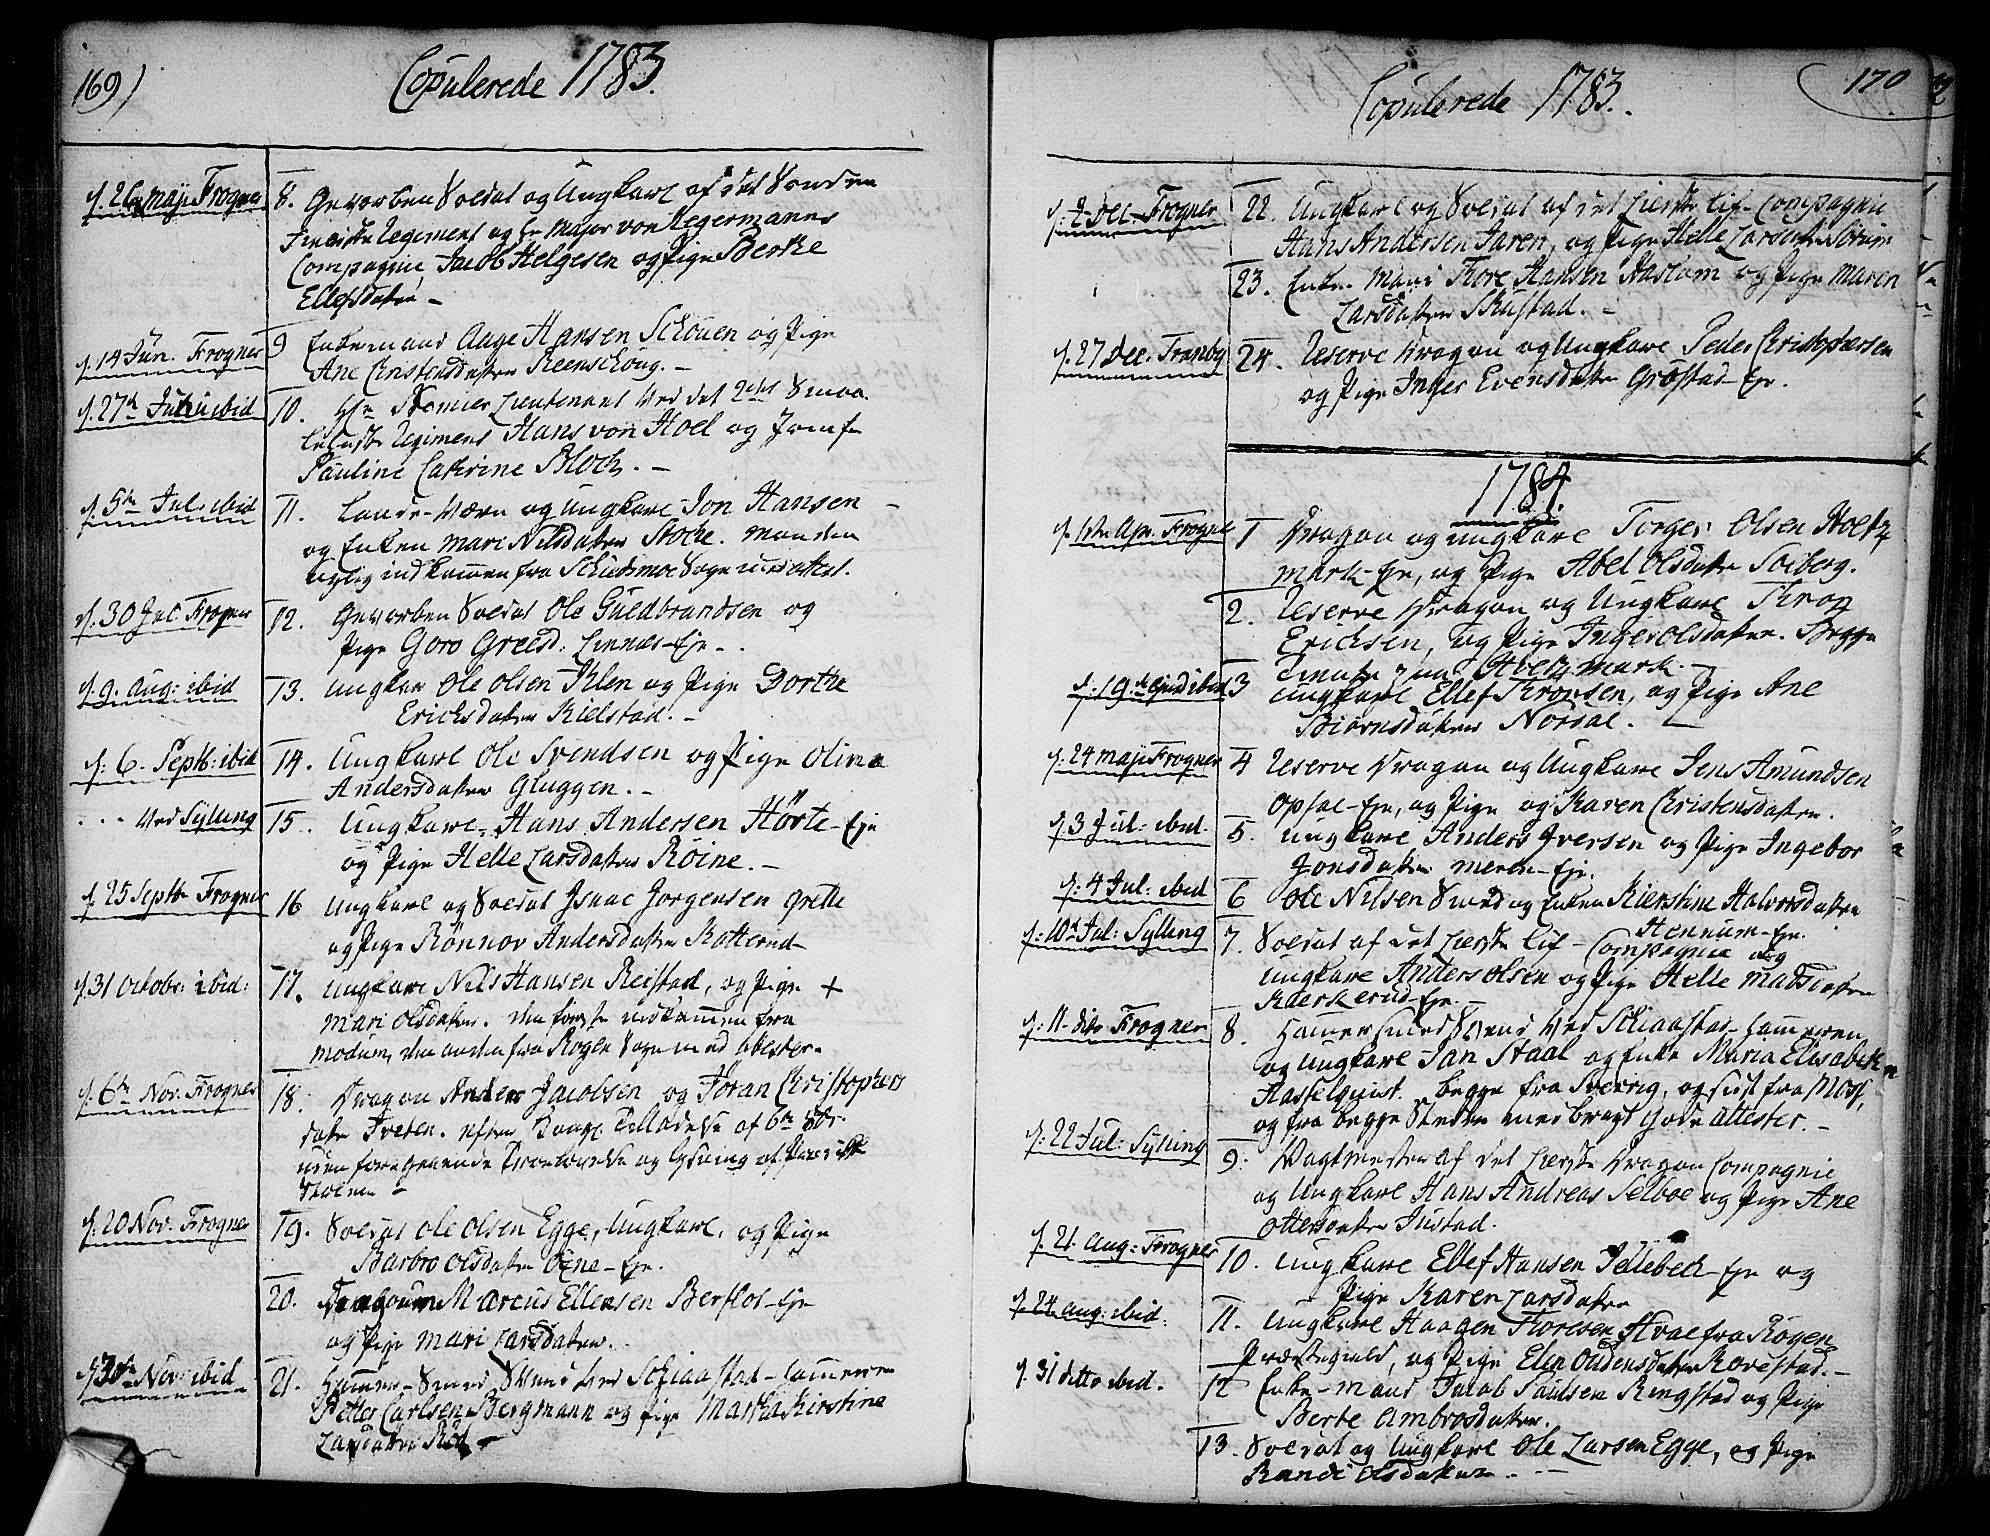 169)
Copulerede 1783.
d. 26 Maji Frogner
8. Gevorben Soldat og Ungkarl af det Sonden
Regiment og Hr Major von Negermanns
Compagnie Jacob Helgesen og Pige Berthe
Ellefsdatter –
d. 14 Jun. Frogner
9 Enkemand Aage Hansen Schouen og Pige
Ane Christensdatter Reenskoug. –
d. 27de Juni ibid
10. Hr Premier Lieutenant ved det 2det Smaa
Regiment Hans von Hoel og Jomfr
Pauline Cathrine Bloch. –
d. 5te Jul: ibid
11. Lande-Værn og Ungkarl Jon Hansen –
og Enken Mari Nilsdatter Stoche. Manden
indkommen fra Schiedsmoe Sogn med attest.
d. 30 Jul Frogner
12. Gevorben Soldat Ole Guldbrandsen og
Pige Goro Greesd: Linnæs-Eje –.
d. 9. Aug: ibid
13. Ungkarl Ole Olsen Iklen og Pige Dorthe
Ericksdatter Kielstad. –
d: 6. Septb: ibid
14. Ungkarl Ole Svendsen og Pige Olina
Andersdatter Gluggen. –
... Ved Sylling
15. Ungkarl Hans Andersen Hörte-Eje
og Pige Helle Larsdatter Röine. –
d. 25 Septb. Frogner
16 Ungkarl og Soldat Isaac Jorgensen Grette
og Pige Rönnov Andersdatter Rotterud –
d. 31 Octobr: ibid:
17. Ungkarl Nils Hansen Reistad, og Pige +
Mari Olsdatter. den første indkommen fra
Modum, den anden fra Rogen Sogn med attester.
d. 6te Nov: Frogner
18. Dragon Anders Jacobsen og Joran Christophers
datter Tveten. efter Kongl. Tilladelse af 6te
uden foregaaende Trolovelse og Lysning af Prædike
Stolen –
d: 20 Nov. Frogner
19. Soldat Ole Olsen Egge, Ungkarl, og Pige
Barbro Olsdatter Öine-Eje.
20. Marcus Ellensen Berflot-Eje
og Pige Mari Larsdatter.
d. 30te Nov: ibid
21. Hammer-Smed Svend ved Schiaastad-Hammeren
Petter Carlsen Bergmann og Pige Martha Kirstine
Larsdatter Röd –
170
Copulerede 1783.
d. 2 Dec. Frogner
22. Ungkarl og Soldat af det Lierske Lif-Compagnie
Hans Andersen Jaren, og Pige Helle Larsdatter Sörum
23. Enke-Mand Tore Hansen Haslom og Pige Maren
Larsdatter Skustad. –
d. 27 Dec. Tranby
24. Reserve Dragon og Ungkarl Peder Christophersen
og Pige Inger Evensdatter Gröstad-Eje.
1784.
d. 1ste Apr. Frogne
1 Dragon og Ungkarl Torger Olsen Hvetz
mark-Eje, og Pige Abel Olsdatter Soiberg.
2. Reserve Dragon og Ungkarl Thron
Ericksen, og Pige Inger Olsdatter. Begge
paa Hvetzmark.
d: 19de ibid
3 Ungkarl Ellef Thronsen, og Pige Ane
Biörnsdatter Nordal. –
d. 24 Maji Frogner
4 Reserve Dragon og Ungkarl Jens Amundsen
Opsal-Eje, og Pige og Karen Christensdatter.
d. 3 Jul: ibid.
5. Ungkarl Anders Iversen og Pige Ingebor
Jonsdatter Meren-Eje.
d: 4 Jul: ibid
6 Ole Nilsen Smed og Enken Kierstine Halvorsdatter
Hennum-Eje.
d: 10de Jul: Sylling
7. Soldat af det Lierske Lif-Compagnie og
Ungkarl Anders Olsen og Pige Helle Madsdatter
Kierkerud-Eje. –
d: 11. dito Frogner
8. Hammer Smed Svend ved Schiaastad-Hammeren
og Ungkarl Jan Staal og Enke Maria Elisabeth
Hasselquist. begge fra Sverrig, og sidst fra Moss,
og fra begge Stæder medbragt gode Attester. –
d: 22 Jul: Sylling
9. Vagtmester af det Lierske Dragon Compagnie
og Ungkarl Hans Andreas Selboe og Pige Ane
Ottersdatter Justad.
d. 21. Aug: Frogner
10. Ungkarl Ellef Hansen Jellebech-Eje og
Pige Karen Larsdatter
d. 24 Aug: ibid.
11. Ungkarl Haagen Thoresen Hval fra Rögen
Præstegield, og Pige Elin Oudensdatter Kovestad. –
d. 31 ditto ibid.
12 Enke-Mand Jacob Paulsen Ringstad og Pige
Berte Ambrosdatter.
13. Soldat og Ungkarl Ole Larsen Egge, og Pige
Randi Olsdatter – –